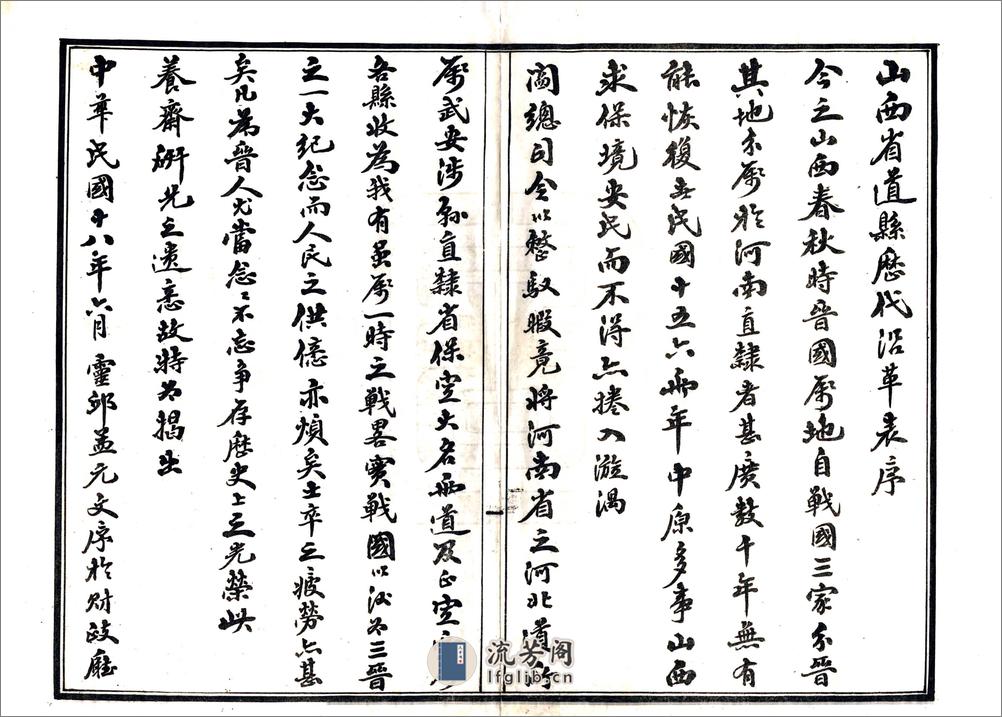 山西省道縣歷代沿革表序
今之山西春秋時晉國屬地自戰國三家分晉
其地分屬於河南直隸者甚廣數千年無有
能恢復at民國十五六兩年中原多事山西
求保境安民而不得亦捲入漩渦
閻總司令以整馭暇竟將河南省之河北道所
屬武安涉縣直隸省保定大名兩道及正定
各縣收為我有虽屬一時之戰畧實戰國以後为三晉
之一大紀念而人民之供億亦煩矣士卒之疲勞亦甚
矣凡為晉人尤當念念不忘爭存歷史上之光榮此
養齋研先之遺意故特为揭出
中華民國十八年六月靈邱孟元文序於財政廳
流芳阁
lfglib.cn